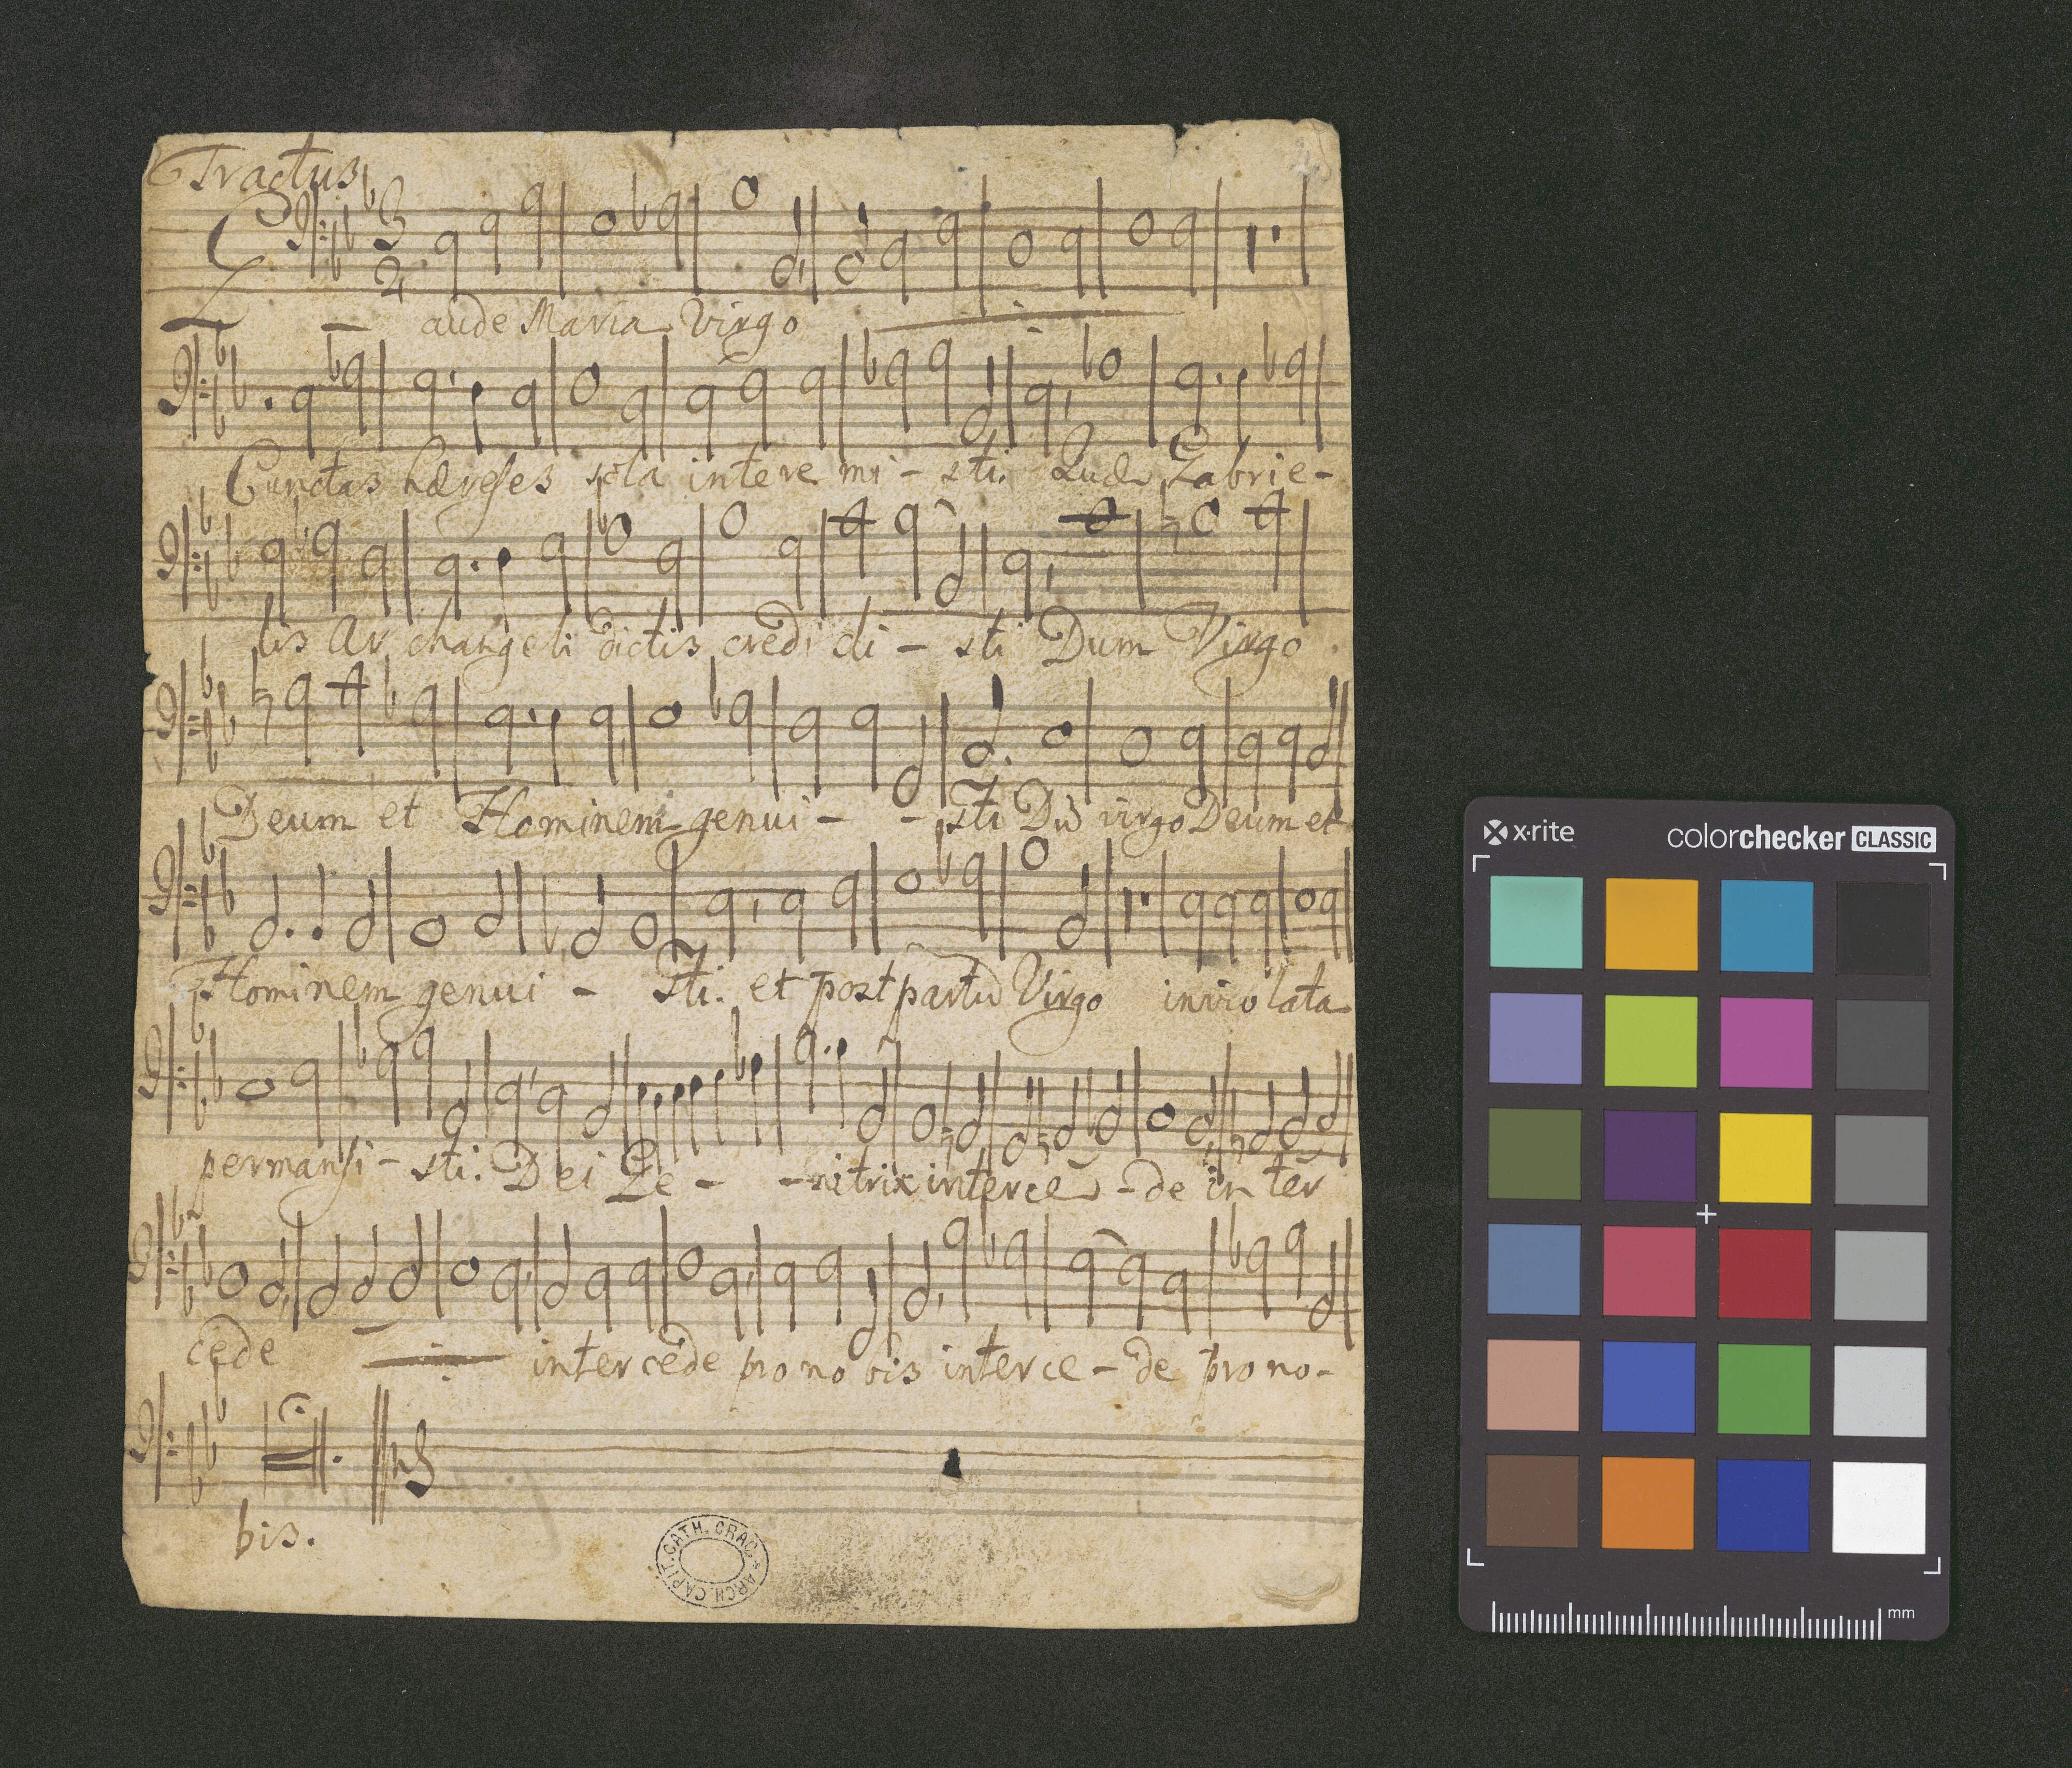 Tractus
3
2
Gaude Maria Virgo
Cunctas hæreses sola interemi - sti. Quæ Gabrie-
lis Archangeli dictis credidi - sti Dum Virgo
Deum et Hominem genui - - sti Dũ virgo Deum et
Hominem genui - sti. et post partũ Virgo inviolata
permansi - sti. Dei Ge - - nitrix interce - de inter
cede intercede pro nobis interce - de pro no-
bis.
ARCH. CAPIT. CATH. CRAC.
x·rite colorchecker CLASSIC
mm